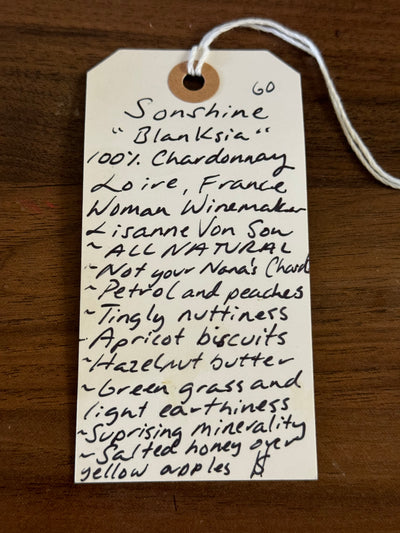 60
Sonshine
"Blanksia"
100% Chardonnay
Loire, France
Woman Winemaker
Lisanne Von Son
~ ALL NATURAL
~Not your Nana's Chard
~Petrol and peaches
~Tingly nuttiness
-Apricot biscuits
~Hazelnut butter
~Green grass and
light earthiness
~Suprising minerality
~Salted honey over
yellow apples